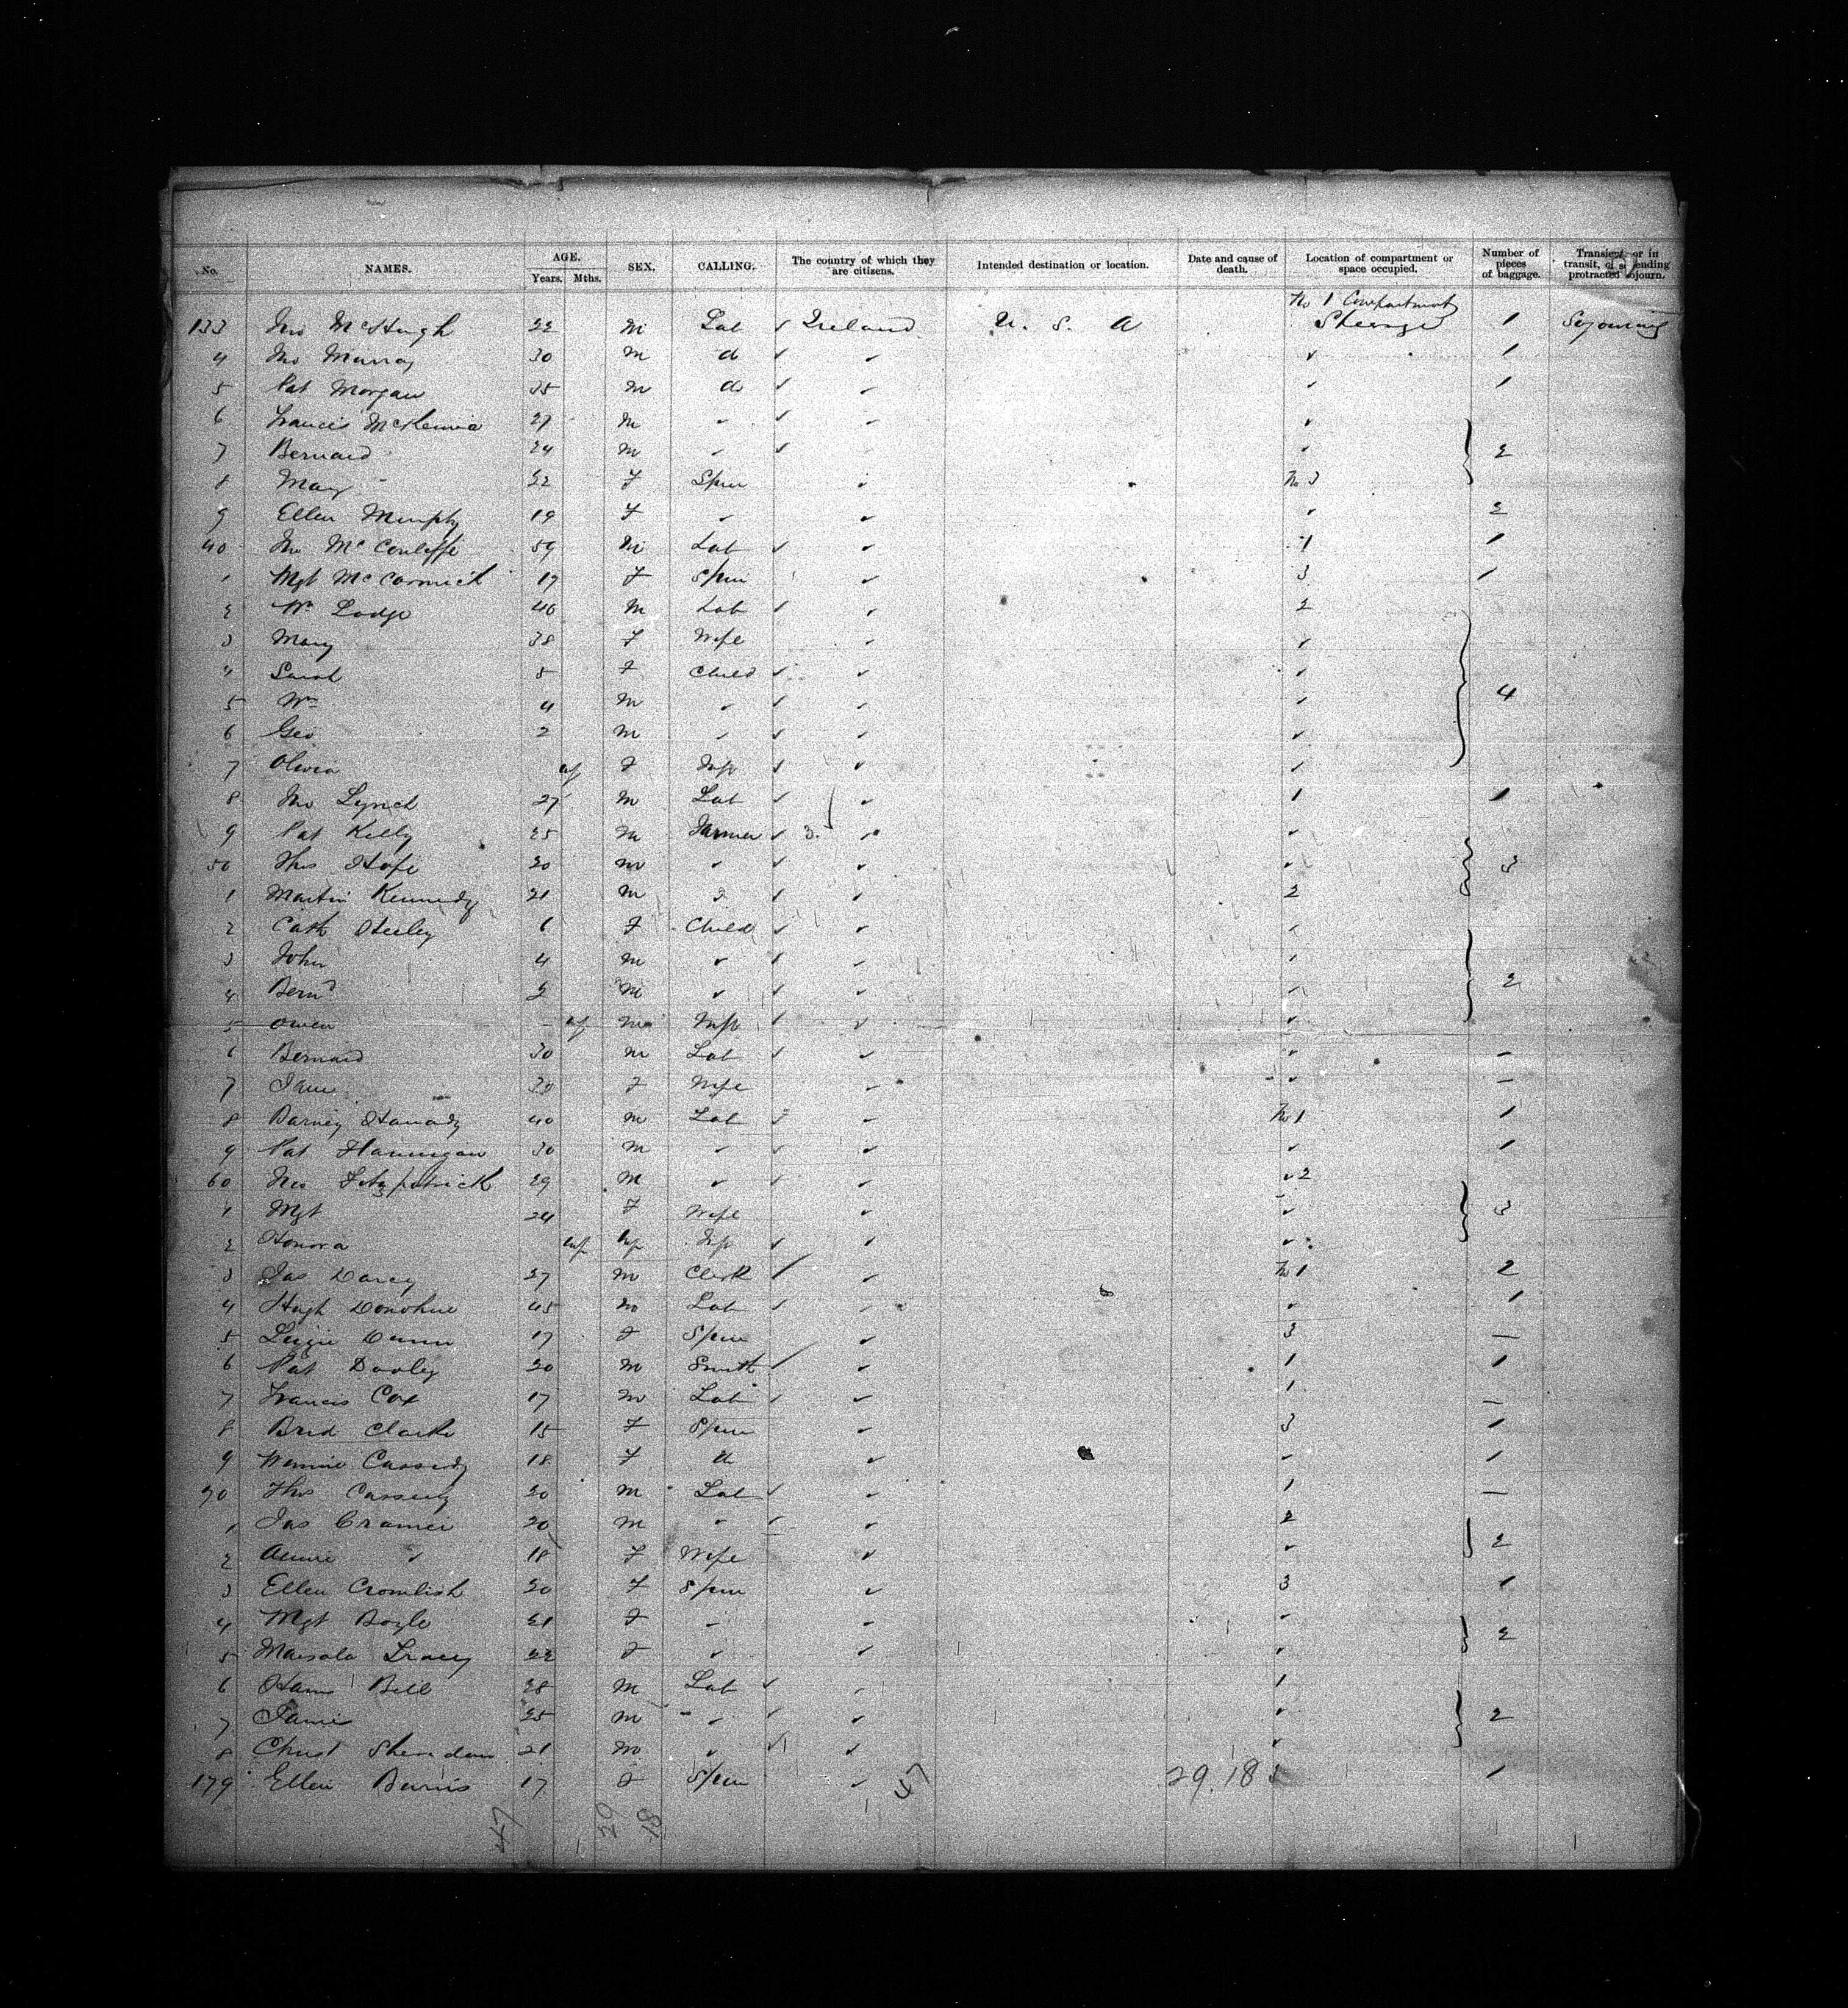 No. NAMES. AGE. Years. Mths. SEX. CALLING. The country of which they are citizens. Intended destination or location. Date and cause of death. Location of compartment or space occupied. Number of pieces of baggage. Transient, or in transit, or intending protracted sojourn.
No 1 Compartment
133 Jno McHugh 22 M Lab ✓ Ireland U. S. A Steerage 1 Sojourning
4 Jno Murray 30 M do ✓ ✓ ✓ 1
5 Pat Morgan 35 M do ✓ ✓ ✓ 1
6 Francis McKenna 27 M ✓ ✓ ✓ ✓
7 Bernard 24 M ✓ ✓ ✓ 2
8 Mary " 22 F Spin ✓ No 3
9 Ellen Murphy 19 F ✓ ✓ ✓ 2
40 Jno McConliffe 59 M Lab ✓ ✓ 1 1
1 Mgt McCormick 19 F Spin ✓ 3 1
2 Wm Lodge 40 M Lab ✓ ✓ 2
3 Mary 38 F Wife ✓ ✓
4 Sarah 5 F Child ✓ ✓ ✓
5 Wm 4 M ✓ ✓ ✓ ✓ 4
6 Geo 2 M ✓ ✓ ✓ ✓
7 Olivia inf F Inft ✓ ✓ ✓
8 Jno Lynch 27 M Lab ✓ ✓ 1 1
9 Pat Kelly 25 M Farmer ✓ 3. ✓ ✓
50 Thos Hope 20 M ✓ ✓ ✓ ✓ 3
1 Martin Kennedy 21 M ✓ ✓ 2
2 Cath Heeley 6 F Child ✓ ✓ ✓
3 John 4 M ✓ ✓ ✓ ✓
4 Bernd 2 M ✓ ✓ ✓ ✓ 2
5 Owen - inf M Inft ✓ ✓ ✓
6 Bernard 30 M Lab ✓ ✓ ✓ -
7 Jane 30 F Wife ✓ ✓ -
8 Barney 40 M Lab ✓ No 1 1
9 Pat Hannigan 30 M ✓ ✓ ✓ ✓ 1
60 Jno Fitzpatrick 29 M ✓ ✓ ✓ ✓ 2
1 Mgt 24 F Wife ✓ ✓ 3
2 Honora inf Inft ✓ ✓ ✓
3 Jas Darcy 27 M Clerk ✓ ✓ No 1 2
4 Hugh Donohue 45 M Lab ✓ ✓ ✓ 1
5 Lizzie Dunn 17 F Spin ✓ 3 —
6 Pat Dooley 20 M Smith ✓ ✓ 1 1
7 Francis Cox 17 M Lab ✓ ✓ 1 —
8 Brid Clarke 15 F Spin ✓ 3 1
9 Winnie Cassidy 18 F do ✓ ✓ 1
70 Thos Cassidy 20 M Lab ✓ ✓ 1 —
1 Jas 20 M ✓ ✓ ✓ 2
2 Annie ✓ 18 F Wife ✓ ✓ 2
3 Ellen Cromlish 20 F Spin ✓ 3 1
4 Mgt Boyle 21 F ✓ ✓ ✓
5 22 F ✓ ✓ ✓ 2
6 Bell 28 M Lab ✓ ✓ 1
7 25 M ✓ ✓ ✓ ✓ 2
8 Christ Sheridan 21 M ✓ ✓ ✓ ✓
179 Ellen Burns 17 F Spin ✓ 47 29.18 3 1
47 29 18